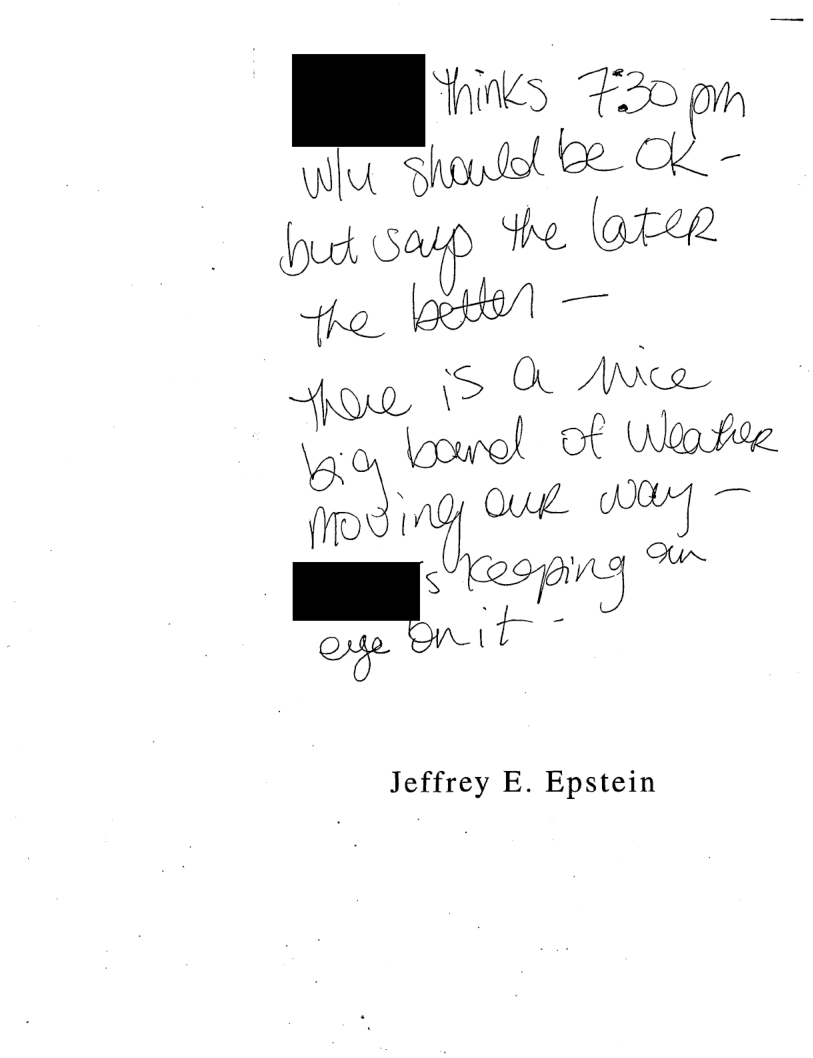 thinks 7:30 pm
w/u should be OK -
but says the later
the better —
there is a nice
big band of weather
moving our way —
s keeping an
eye on it -
Jeffrey E. Epstein